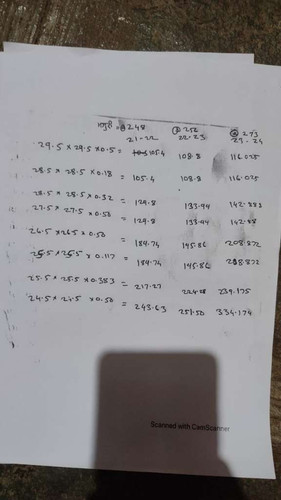 248 256 273
21-22 22-23 23-24
29.5 × 29.5 × 0.5 = 105.4 108.8 116.025
28.5 × 28.5 × 0.18 = 105.4 108.8 116.025
28.5 × 28.5 × 0.32 = 129.8 133.94 142.883
27.5 × 27.5 × 0.50 = 129.8 133.94 142.88
26.5 × 26.5 × 0.50 = 184.74 145.86 208.872
25.5 × 25.5 × 0.117 = 184.74 145.86 208.872
25.5 × 25.5 × 0.383 = 217.27 224.28 239.175
24.5 × 24.5 × 0.50 = 243.63 251.50 334.174
Scanned with CamScanner